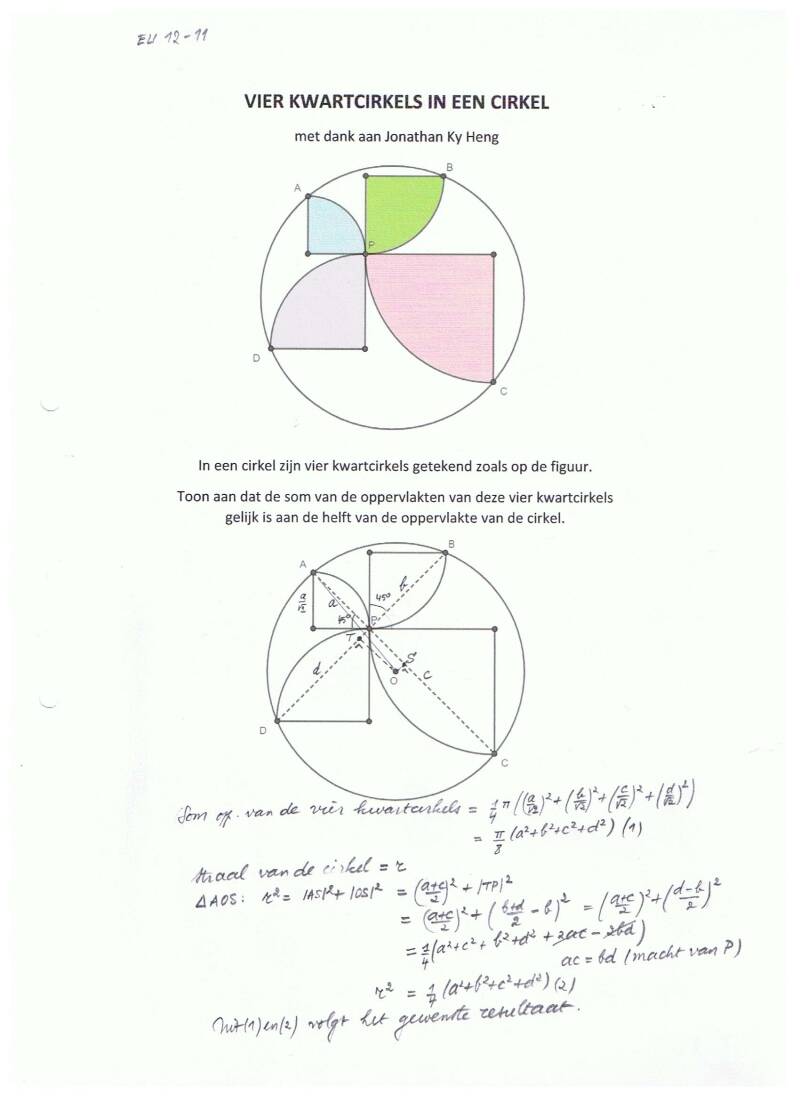 EU 12-11
VIER KWARTCIRKELS IN EEN CIRKEL
met dank aan Jonathan Ky Heng
A
B
P
D
C
In een cirkel zijn vier kwartcirkels getekend zoals op de figuur.
Toon aan dat de som van de oppervlakten van deze vier kwartcirkels
gelijk is aan de helft van de oppervlakte van de cirkel.
A
B
a/√2
a
45°
b
45°
P
T
S
d
c
O
D
C
Som op. van de vier kwartcirkels = 1/4 π((a/√2)²+(b/√2)²+(c/√2)²+(d/√2)²)
= π/8 (a²+b²+c²+d²) (1)
straal van de cirkel = r
ΔAOS: r² = |AS|²+|OS|² = (a+c/2)²+|TP|²
= (a+c/2)²+(b+d/2 - b)² = (a+c/2)²+(d-b/2)²
= 1/4(a²+c²+b²+d²+2ac-2bd)
ac = bd (macht van P)
r² = 1/4 (a²+b²+c²+d²) (2)
Uit (1) en (2) volgt het gewenste resultaat.